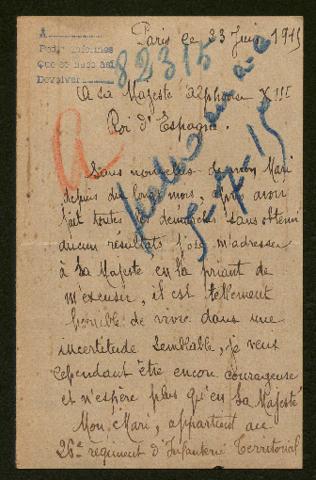 A
Pedir informes
Que se hizo así
Devolver
Paris le 23 Juin 1915
82315
A Sa Majesté Alphonse XIII
Roi d'Espagne.
Sans nouvelles de mon Mari
depuis de longs mois, après avoir
fait toutes les démarches sans obtenir
aucun résultats j'ose m'adresser
à Sa Majesté en la priant de
m'excuser, il est tellement
horrible de vivre dans une
incertitude semblable, je veux
cependant être encore courageuse
et n'espère plus qu'en Sa Majesté
Mon Mari, appartient au
26e régiment d'Infanterie Territorial
5-7-15